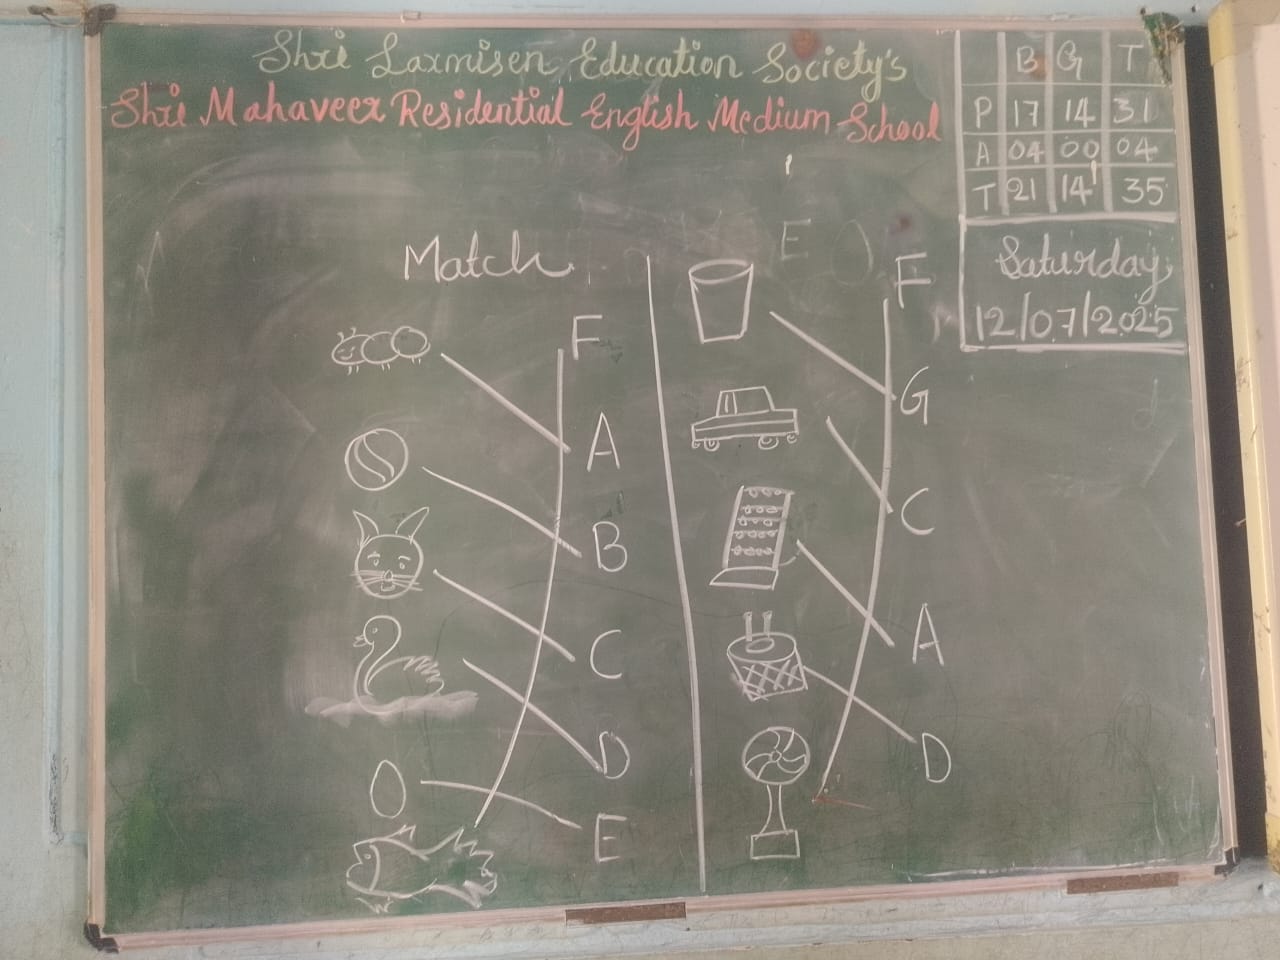 Shri Laxmisen Education Society's
Shri Mahaveer Residential English Medium School
B G T
P 17 14 31
A 04 00 04
T 21 14 35
Saturday
12/07/2025
Match
F
A
B
C
D
E
E
F
G
C
A
D